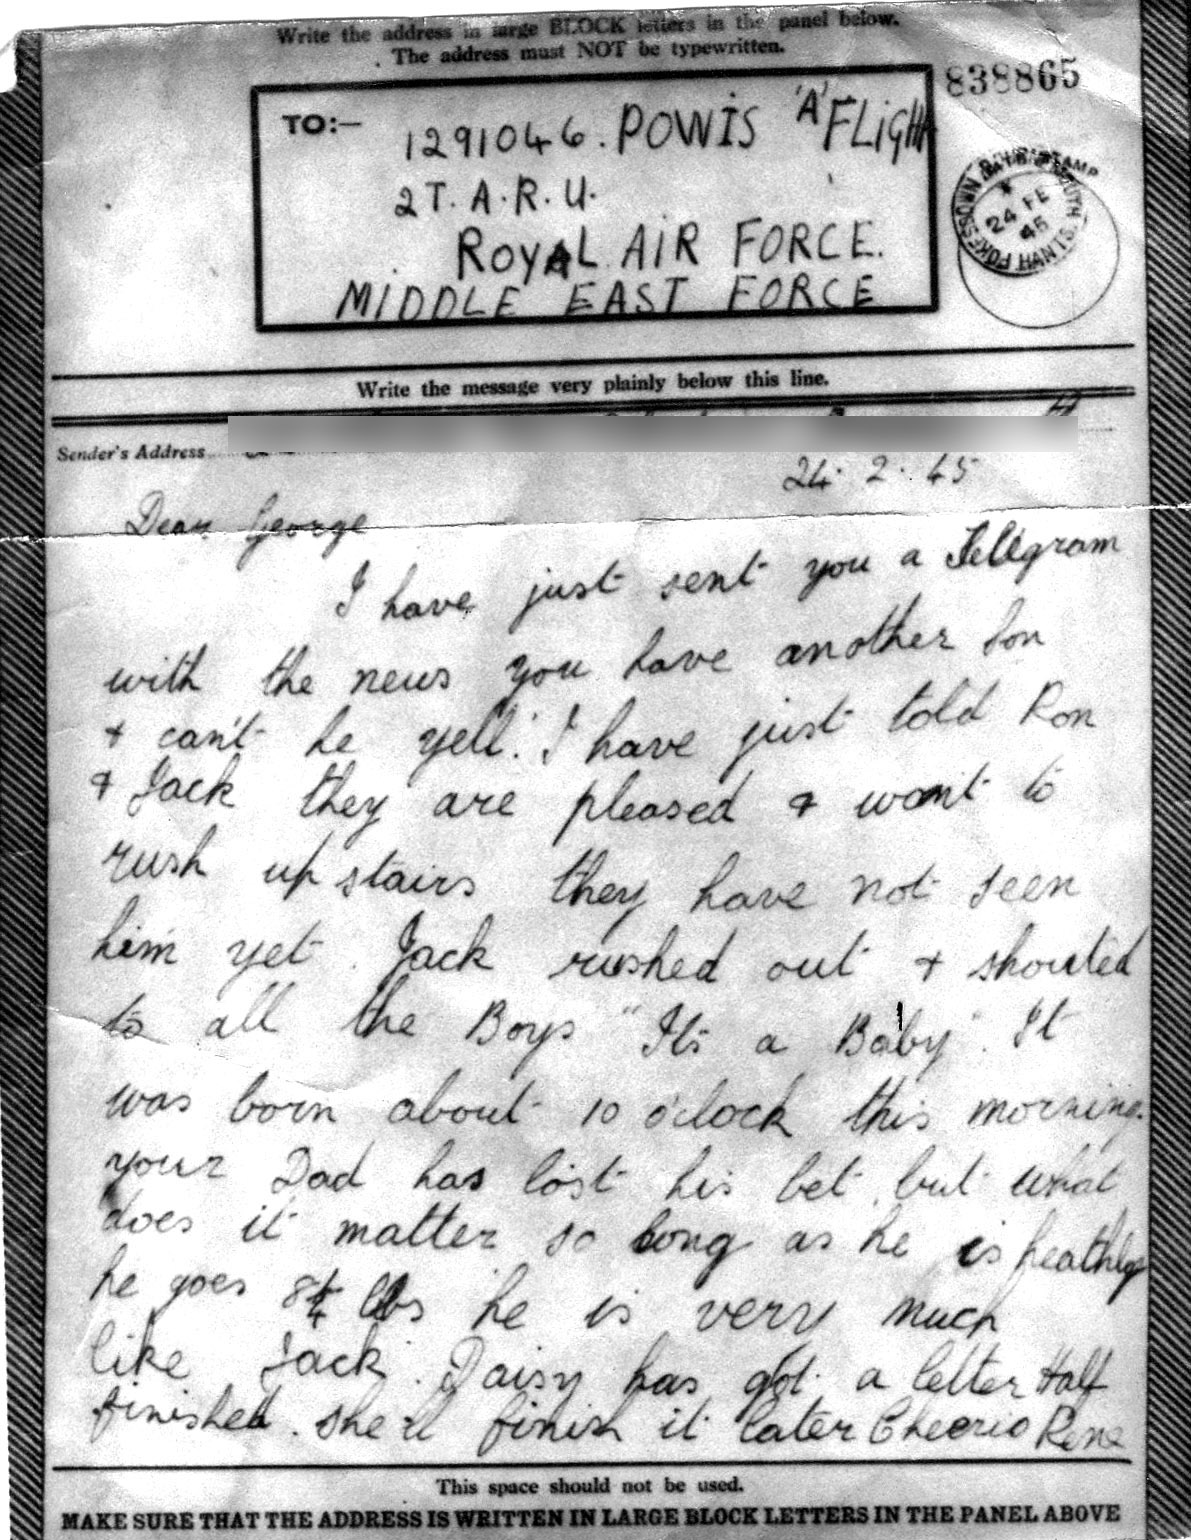 Write the address in large BLOCK letters in the panel below.
The address must NOT be typewritten.
838865
TO:—
1291046. POWIS 'A' FLIGH
2 T. A. R. U.
ROYAL AIR FORCE.
MIDDLE EAST FORCE
POKESDOWN
24 FE
45
HANTS
Write the message very plainly below this line.
Sender's Address
24. 2. 45
Dear George
I have just sent you a Telegram
with the news you have another Son
& can't he yell! I have just told Ron
& Jack they are pleased & want to
rush up stairs they have not seen
him yet. Jack rushed out & shouted
to all the Boys "It's a Baby". It
was born about 10 o'clock this morning.
your Dad has lost his bet, but what
does it matter so long as he is heathly
he goes 8¼ lbs he is very much
like Jack. Daisy has got a letter Half
finished. she'll finish it later Cheerio Rene
This space should not be used.
MAKE SURE THAT THE ADDRESS IS WRITTEN IN LARGE BLOCK LETTERS IN THE PANEL ABOVE